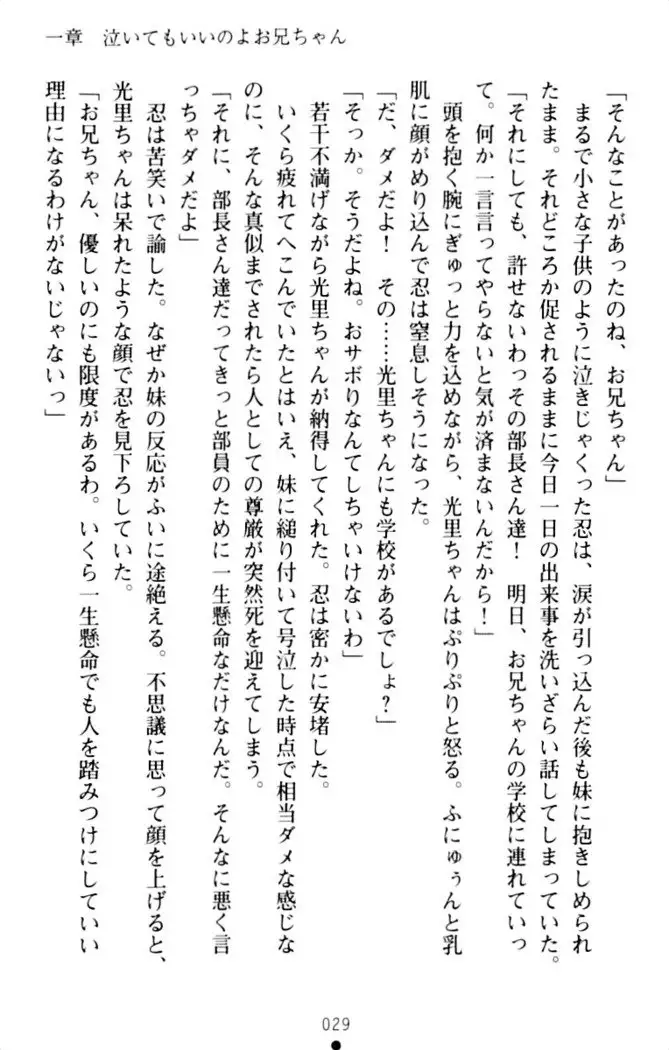 一章　泣いてもいいのよお兄ちゃん
「そんなことがあったのね、お兄ちゃん」
　まるで小さな子供のように泣きじゃくった忍は、涙が引っ込んだ後も妹に抱きしめられ
たまま。それどころか促されるままに今日一日の出来事を洗いざらい話してしまっていた。
「それにしても、許せないわっその部長さん達！　明日、お兄ちゃんの学校に連れていっ
て。何か一言言ってやらないと気が済まないんだから！」
　頭を抱く腕にぎゅっと力を込めながら、光里ちゃんはぷりぷりと怒る。ふにゅぅんと乳
肌に顔がめり込んで忍は窒息しそうになった。
「だ、ダメだよ！　その……光里ちゃんにも学校があるでしょ？」
「そっか。そうだよね。おサボりなんてしちゃいけないわ」
　若干不満げながら光里ちゃんが納得してくれた。忍は密かに安堵した。
　いくら疲れてへこんでいたとはいえ、妹に縋り付いて号泣した時点で相当ダメな感じな
のに、そんな真似までされたら人としての尊厳が突然死を迎えてしまう。
「それに、部長さん達だってきっと部員のために一生懸命なだけなんだ。そんなに悪く言
っちゃダメだよ」
　忍は苦笑いで諭した。なぜか妹の反応がふいに途絶える。不思議に思って顔を上げると、
光里ちゃんは呆れたような顔で忍を見下ろしていた。
「お兄ちゃん、優しいのにも限度があるわ。いくら一生懸命でも人を踏みつけにしていい
理由になるわけがないじゃないっ」
029